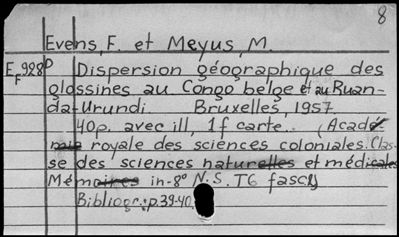 8
Evens, F. et Meyus, M.
EF928D Dispersion géographique des
glossines au Congo belge et au Ruan-
da-Urundi. Bruxelles, 1957.
40p. avec ill, 1f carte. (Acadé
mie royale des sciences coloniales. Clas-
se des sciences naturelles et médicales
Mémoires in-8° N.S. T6 fasc
Bibliogr.: p.39-40.